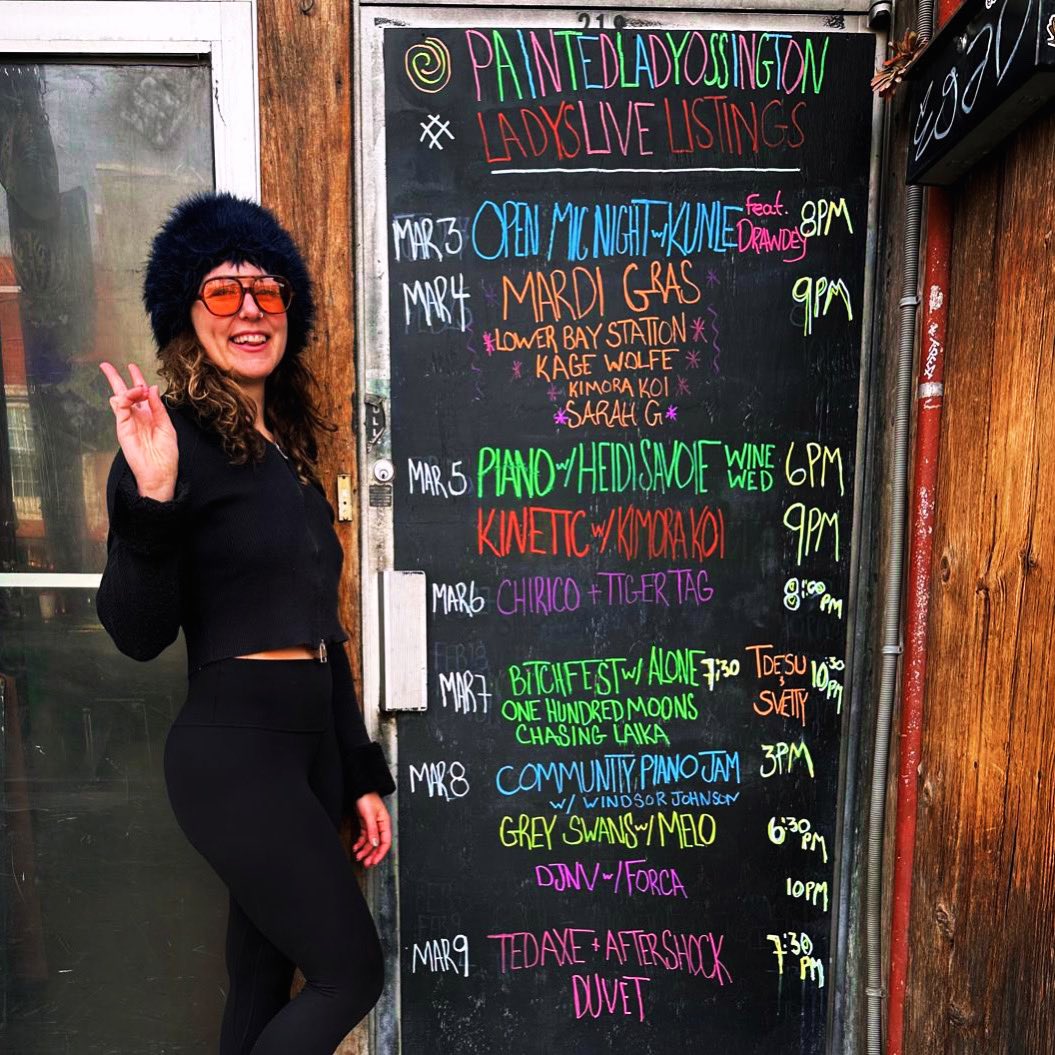 218
PAINTEDLADYOSSINGTON
LADYSLIVE LISTINGS
MAR 3 OPEN MIC NIGHT w/ KUNLE feat. DRAWDEY 8PM
MAR 4 MARDI GRAS 9PM
LOWER BAY STATION
KAGE WOLFE
KIMORA KOI
SARAH G
MAR 5 PIANO w/ HEIDI SAVOIE WINE WED 6PM
KINETIC w/ KIMORA KOI 9PM
MAR 6 CHIRICO + TIGER TAG 8:00 PM
MAR 7 BITCHFEST w/ ALONE 7:30 TDESU & SVETTY 10:30 PM
ONE HUNDRED MOONS
CHASING LAIKA
MAR 8 COMMUNITY PIANO JAM 3PM
w/ WINDSOR JOHNSON
GREY SWANS w/ MELO 6:30 PM
DJNV w/ FORCA 10PM
MAR 9 TEDAXE + AFTERSHOCK 7:30 PM
DUVET